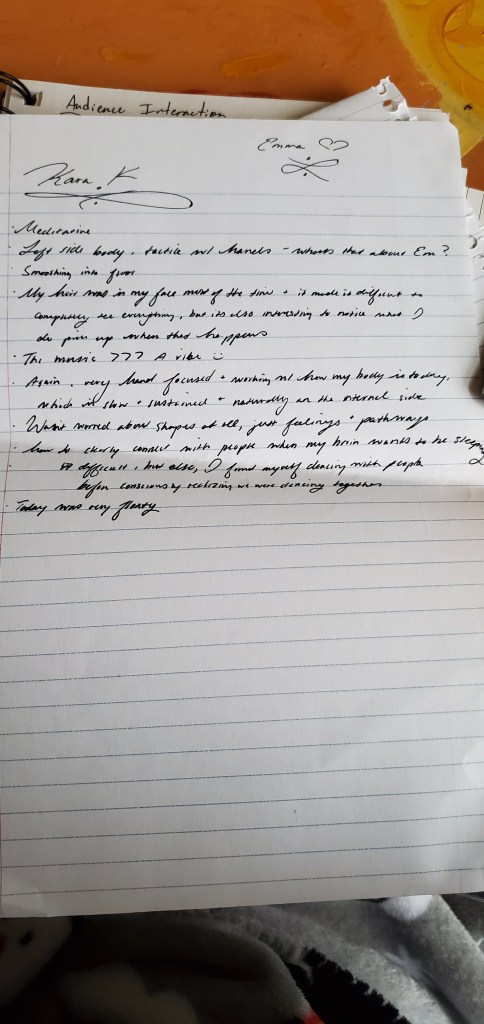 Audience Interaction
Emma ♡
Kara. K
· Meditative
· Left side body, tactile w/ hands - what's that about Em?
· Smooshing into floor
· My hair was in my face most of the time + it made it difficult to
completely see everything, but its also interesting to notice what I
do pick up when that happens
· The music ??? A vibe
· Again, very hand focused + working w/ how my body is today,
which is slow + sustained + naturally on the internal side
· Wasn't worried about shapes at all, just feelings + pathways
· how to clearly connect with people when my brain wants to be sleepy
↳ difficult, but also, I found myself dancing with people
before consciously realizing we were dancing together
· Today was very floaty